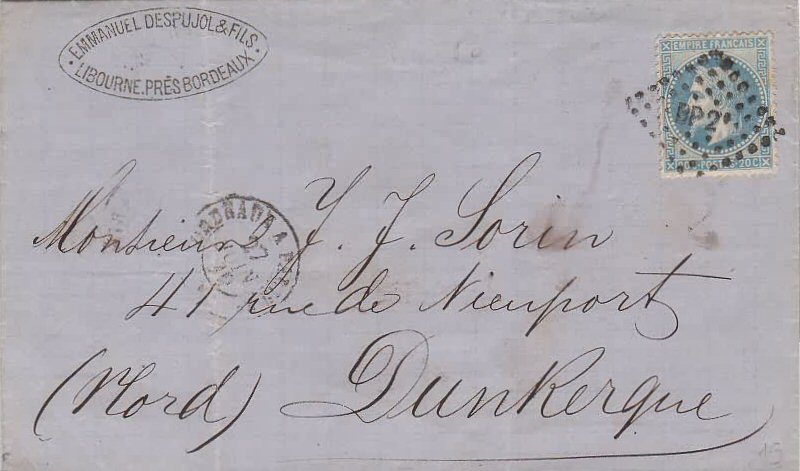 EMMANUEL DESPUJOL & FILS
LIBOURNE. PRÈS BORDEAUX
EMPIRE FRANÇAIS
BP2
20 C
BORDEAUX A
27
Monsieur J. J. Sorin
41 rue de Nieuport
(Nord) Dunkerque